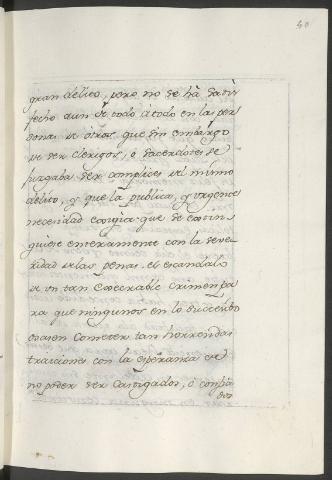 40
gran delito, pero no se hà satis
fecho aun de todo à todo en las per
sonas de otros que sin embargo
de ser clerigos, o sacerdotes se
juzgaba ser complices del mismo
delito, y que la publica, y urgente
necesidad exigia que se extin
guiese enteramente con la seve
ridad de las penas el escandalo
de un tan execrable crimen pa
ra que ningunos en lo succesibo
osasen cometer tan horrendas
traiciones con la esperanza de
no poder ser castigados, ò confia
dos